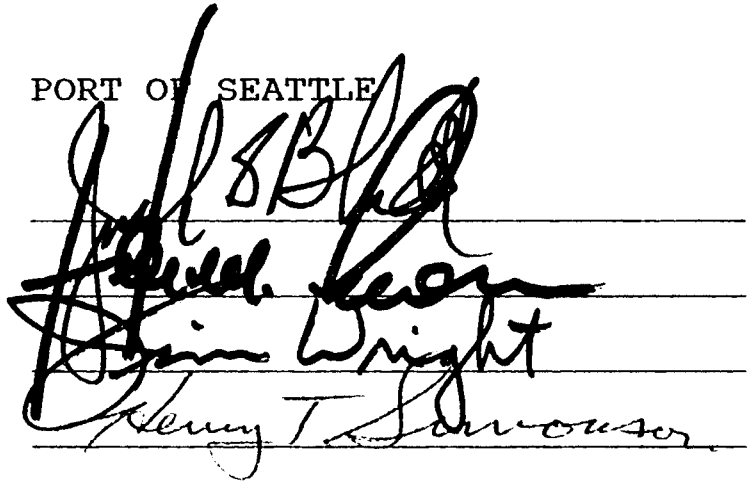 PORT OF SEATTLE
Jack S Block
Jim Wright
Henry T. Simonson